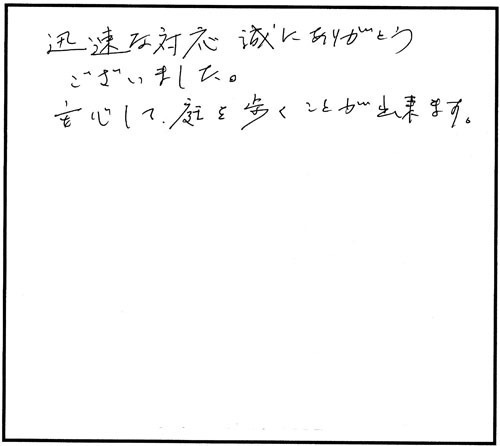 迅速な対応 誠にありがとう
ございました。
安心して、庭を歩くことが出来ます。